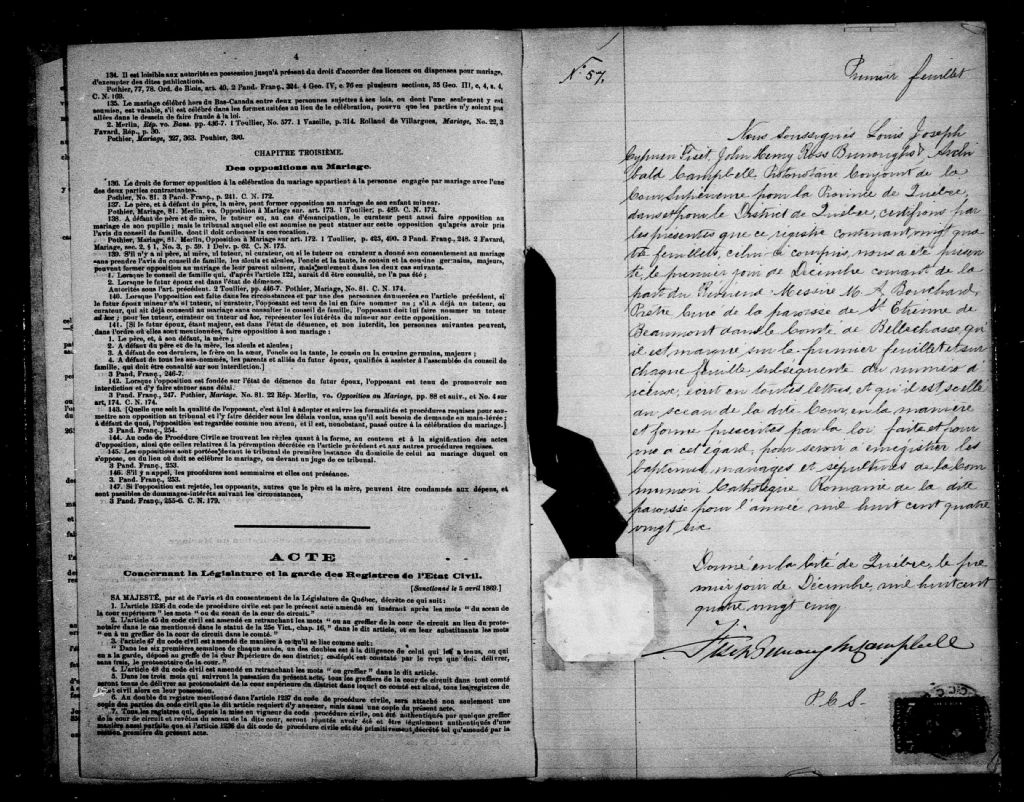 4
134. Il est loisible aux autorités en possession jusqu'à présent du droit d'accorder des licences ou dispenses pour mariage,
d'exempter des dites publications.
Pothier, 77, 78. Ord. de Blois, art. 40. 2 Pand. Franç., 324. 4 Geo. IV, c. 76 en plusieurs sections, 35 Geo. III, c, 4, s. 4,
C. N. 169.
135. Le mariage célébré hors du Bas-Canada entre deux personnes sujettes à ses lois, ou dont l'une seulement y est
soumise, est valable, s'il est célébré dans les formes usitées au lieu de la célébration, pourvu que les parties n'y soient pas
allées dans le dessein de faire fraude à la loi.
2. Merlin, Rép. vo. Bans. pp. 436-7. 1 Toullier, No. 577. 1 Vazeille, p. 314. Rolland de Villargues, Mariage, No. 22, 3
Favard, Rép., p. 30.
Pothier, Mariage, 327, 363. Pouhier, 390.
CHAPITRE TROISIÈME.
Des oppositions au Mariage.
136. Le droit de former opposition à la célébration du mariage appartient à la personne engagée par mariage avec l'une
des deux parties contractantes.
Pothier, No. 81. 3 Pand. Franç., p. 241. C. N. 172.
137. Le père, et à défaut du père, la mère, peut former opposition au mariage de son enfant mineur.
Pothier, Mariage, 81. Merlin, vo. Opposition à Mariage sur art. 173. 1 Toullier, p. 489. C. N. 173.
138. A défaut de père et de mère, le tuteur ou, au cas d'émancipation, le curateur peut aussi faire opposition au
mariage de son pupille ; mais le tribunal auquel elle est soumise ne peut statuer sur cette opposition qu'après avoir pris
l'avis du conseil de famille, dont il doit ordonner la convocation.
Pothier, Mariage, 81. Merlin, Opposition à Mariage sur art. 172. 1 Toullier, p. 425, 490. 3 Pand. Franç., 248. 2 Favard,
Mariage, sec. 2, § 1, No. 3, p. 59. 1 Delv. p. 62. C. N. 175.
139. S'il n'y a ni père, ni mère, ni tuteur, ni curateur, ou si le tuteur ou curateur a donné son consentement au mariage
sans prendre l'avis du conseil de famille, les aïeuls et aïeules, l'oncle et la tante, le cousin et la cousine germains, majeurs,
peuvent former opposition au mariage de leur parent mineur, mais seulement dans les deux cas suivants.
1. Lorsque le conseil de famille qui, d'après l'article 122, aurait du être consulté, ne l'a pas été ;
2. Lorsque le futur époux est dans l'état de démence.
Autorités sous l'art. précédent. 2 Toullier, pp. 446-7. Pothier, Mariage, No. 81. C. N. 174.
140. Lorsque l'opposition est faite dans les circonstances et par une des personnes énumérées en l'article précédent, si
le futur époux mineur n'a ni tuteur, ni curateur, l'opposant est tenu de lui en faire nommer un ; s'il a déjà un tuteur, ou
curateur, qui ait déjà consenti au mariage sans consulter le conseil de famille, l'opposant doit lui faire nommer un tuteur
ad hoc ; pour les tuteur, curateur ou tuteur ad hoc, représenter les intérêts du mineur sur cette opposition.
141. [Si le futur époux, étant majeur, est dans l'état de démence, et non interdit, les personnes suivantes peuvent,
dans l'ordre où elles sont mentionnées, faire opposition à son mariage :
1. Le père, et, à son défaut, la mère ;
2. A défaut de père et de mère, les aïeuls et aïeules ;
3. A défaut de ces derniers, le frère ou la sœur, l'oncle ou la tante, le cousin ou la cousine germains, majeurs ;
4. A défaut de tous les sus-nommés, les parents et alliés du futur époux, qualifiés à assister à l'assemblée du conseil de
famille, qui doit être consulté sur son interdiction.]
3 Pand, Franç., 246-7.
142. Lorsque l'opposition est fondée sur l'état de démence du futur époux, l'opposant est tenu de promouvoir son
interdiction et d'y faire statuer sans délai.
3 Pand. Franç., 247. Pothier, Mariage. No. 81. 22 Rép. Merlin, vo. Opposition au Mariage, pp. 88 et suiv., et No. 4 sur
art, 174. C. N. 174.
143. [Quelle que soit la qualité de l'opposant, c'est à lui à adopter et suivre les formalités et procédures requises pour sou-
mettre son opposition au tribunal et l'y faire décider sous les délais voulus, sans qu'il soit besoin de demande en main-levée ;
à défaut de quoi, l'opposition est regardée comme non avenu, et il est, nonobstant, passé outre à la célébration du mariage.]
3 Pand Franç., 254.
144. Au code de Procédure Civile se trouvent les règles quant à la forme, au contenu et à la signification des actes
d'opposition, ainsi que celles relatives à la péremption décrétée en l'article précédent et aux autres procédures requises.
145. Les oppositions sont portées devant le tribunal de première instance du domicile de celui au mariage duquel on
s'oppose, ou du lieu où doit se célébrer le mariage, ou devant un juge de ce tribunal.
3 Pand. Franç., 253.
146. S'il y a appel, les procédures sont sommaires et elles ont préséance.
3. Pand. Franç., 253.
147. Si l'opposition est rejetée, les opposants, autres que le père et la mère, peuvent être condamnés aux dépens, et
sont passibles de dommages-intérêts suivant les circonstances,
3 Pand. Franç., 255-6. C. N. 179.
ACTE
Concernant la Législature et la garde des Registres de l'Etat Civil.
[Sanctionné le 5 avril 1869.]
SA MAJESTÉ, par et de l'avis et du consentement de la Législature de Québec, décrète ce qui suit:
1. L'article 1236 du code de procédure civile est par le présent acte amendé en insérant après les mots "du sceau de
la cour supérieure" les mots "ou du sceau de la cour de circuit."
2. L'article 45 du code civil est amendé en retranchant les mots "ou au greffier de la cour de circuit au lieu du proto-
notaire dans le cas mentionné dans le statut de la 25e Vict., chap. 16," dans le dit article, et en leur substituants les mots
"ou à un greffier de la cour de circuit dans le comté."
3. l'article 47 du code civil est amendé de manière à ce qu'il se lise comme suit:
"Dans les six premières semaines de chaque année, un des doubles est à la diligence de celui qui les a tenus, ou qui
en a la garde, déposé au greffe de la cour Supérieure de son district; ce dépôt est constaté par le reçu que doit délivrer,
sans frais, le protonotaire de la cour."
4. L'article 48 du code civil est amendé en retranchant les mots "ou greffier" dans le dit article.
5. Dans les trois mois qui suivront la passation du présent acte, tous les greffiers de la cour de circuit dans tout comté
seront tenus de délivrer au protonotaire de la cour supérieure du district dans lequel ce comté est situé, tous les registres de
l'état civil alors en leur possession.
6. Au double du registre mentionné dans l'article 1237 du code de procédure civile, sera attaché non seulement une
copie des parties du code civil que le dit article requiert d'y annexer, mais aussi une copie du présent acte.
7. Tous les registres qui, depuis la mise en vigueur du code de procédure civile, ont été authentiqués par quelque greffier
de la cour de circuit et revêtus du sceau de la dite cour, seront réputés avoir été et être légalement authentiqués d'une
manière aussi parfaite que si l'article 1236 du dit code de procédure civile eût été primitivement décrété tel qu'amendé par la
section première du présent acte.
No. 57.
Premier feuillet
Nous soussignés Louis Joseph
Cyprien Fiset, John Henry Ross Burroughs & Archi
bald Campbell, Protonotaire Conjoint de la
Cour Supérieure pour la Province de Québec,
dans et pour le District de Québec, certifions par
les présentes que ce registre contenant vingt qua
tre feuillets, celui-ci compris, nous a été présen
té, le premier jour de Décembre courant de la
part du Révérend Messire M. A. Bouchard,
Prêtre Curé de la paroisse de St Etienne de
Beaumont dans le Comté de Bellechasse, qu'
il est marqué sur le premier feuillet et sur
chaque feuille subséquente du numéro d'
icelui, écrit en toutes lettres et qu'il est scellé
du sceau de la dite Cour, en la manière
et forme prescrites par la loi faite et pour
vue à cet égard, pour servir à enregistrer les
baptêmes, mariages et sépultures de la Com
munion Catholique Romaine de la dite
paroisse pour l'année mil huit cent quatre
vingt six
Donné en la Cité de Québec, le pre
mier jour de Décembre, mil huit cent
quatre vingt cinq
Fiset Burroughs & Campbell
P. C. S.